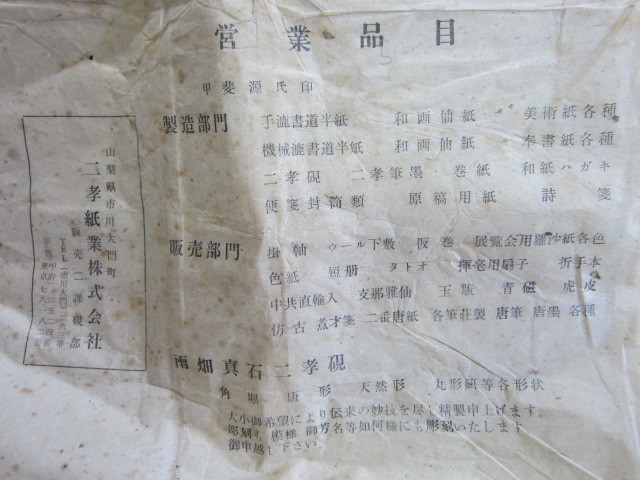 営業品目
甲斐源氏印
製造部門 手漉書道半紙 和画仙紙 美術紙各種
機械漉書道半紙 和画仙紙 奉書紙各種
二孝硯 二孝筆墨 巻紙 和紙ハガキ
便箋封筒類 原稿用紙 詩箋
販売部門 掛軸 ウール下敷 仮巻 展覧会用羅沙紙各色
色紙 短册 タトオ 揮毫用扇子 折手本
中共直輸入 支那雅仙 玉版 青磁 虎皮
仿古 煮才箋 二番唐紙 各筆荘製 唐筆 唐墨 各種
雨畑真石二孝硯
角 唐形 天然形 丸形硯等各形状
大小御希望により伝来の妙技を尽し精製申上げます。
彫刻も模様御芳名等如何様にも彫刻いたします
御申越し下さい。
山梨県市川大門町
二孝紙業株式会社
販売二課硯部